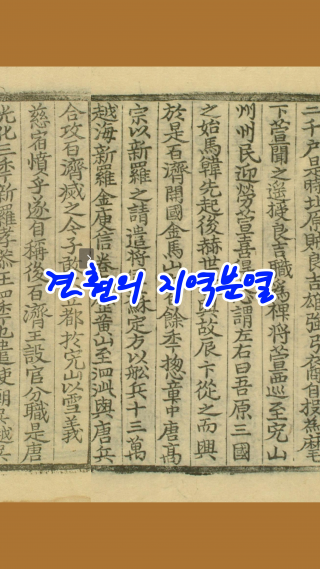 견훤의 지역분열
二千戶是時北原賊良吉雄强弓裔自投爲麾
下萱聞之遥授良吉職爲裨將萱西巡至完山
州州民迎勞萱喜謂左右曰吾原三國
之始馬韓先起後赫世故辰卞從之而興
於是百濟開國金馬山餘年摠章中唐髙
宗以新羅之請遣將蘇定方以舩兵十三萬
越海新羅金庾信卷黃山至泗沘與唐兵
合攻百濟滅之今予敢都於完山以雪義
慈宿憤乎遂自稱後百濟王設官分職是唐
光化三年新羅孝恭王四年也遣使朝吳越